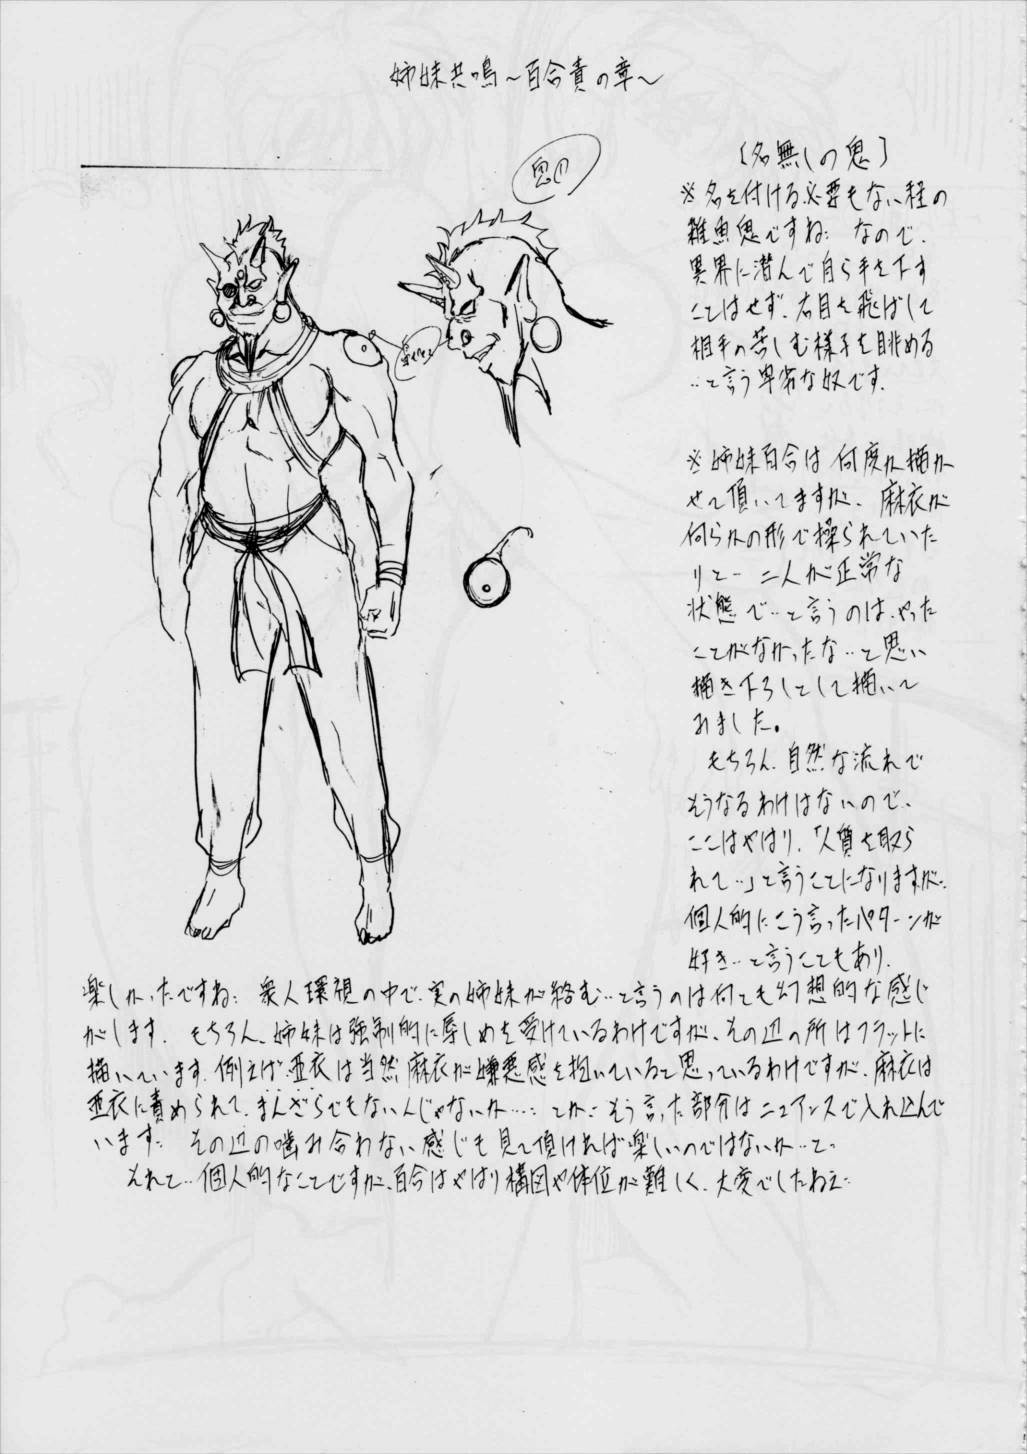 姉妹共鳴〜百合責の章〜
鬼の
〔名無しの鬼〕
※名を付ける必要もない程の
雑魚鬼ですね… なので、
異界に潜んで自ら手を下す
ことはせず、右目を飛ばして
相手の苦しむ様子を眺める
…と言う卑劣な奴です。
※姉妹百合は何度か描か
せて頂いてますが、麻衣が
何らかの形で操られていた
りとー 二人が正常な
状態で…と言うのは、やった
ことがなかったな…と思い
描き下ろしとして描いて
みました。
もちろん、自然な流れで
そうなるわけはないので、
ここはやはり、「人質を取ら
れて…」と言うことになりますが…
個人的にこう言ったパターンが
好き…と言うこともあり、
楽しかったですね… 衆人環視の中で、実の姉妹が絡む…と言うのは何とも幻想的な感じ
がします。 もちろん、姉妹は強制的に辱しめを受けているわけですが、その辺の所はフラットに
描いています。例えば、亜衣は当然麻衣が嫌悪感を抱いていると思っているわけですが、麻衣は
亜衣に責められて、まんざらでもないんじゃないか…… とか… そう言った部分はニュアンスで入れ込んで
います… その辺の噛み合わない感じも見て頂ければ楽しいのではないか…と。
それと… 個人的なことですが、百合はやはり構図や体位が難しく、大変でしたねえ…